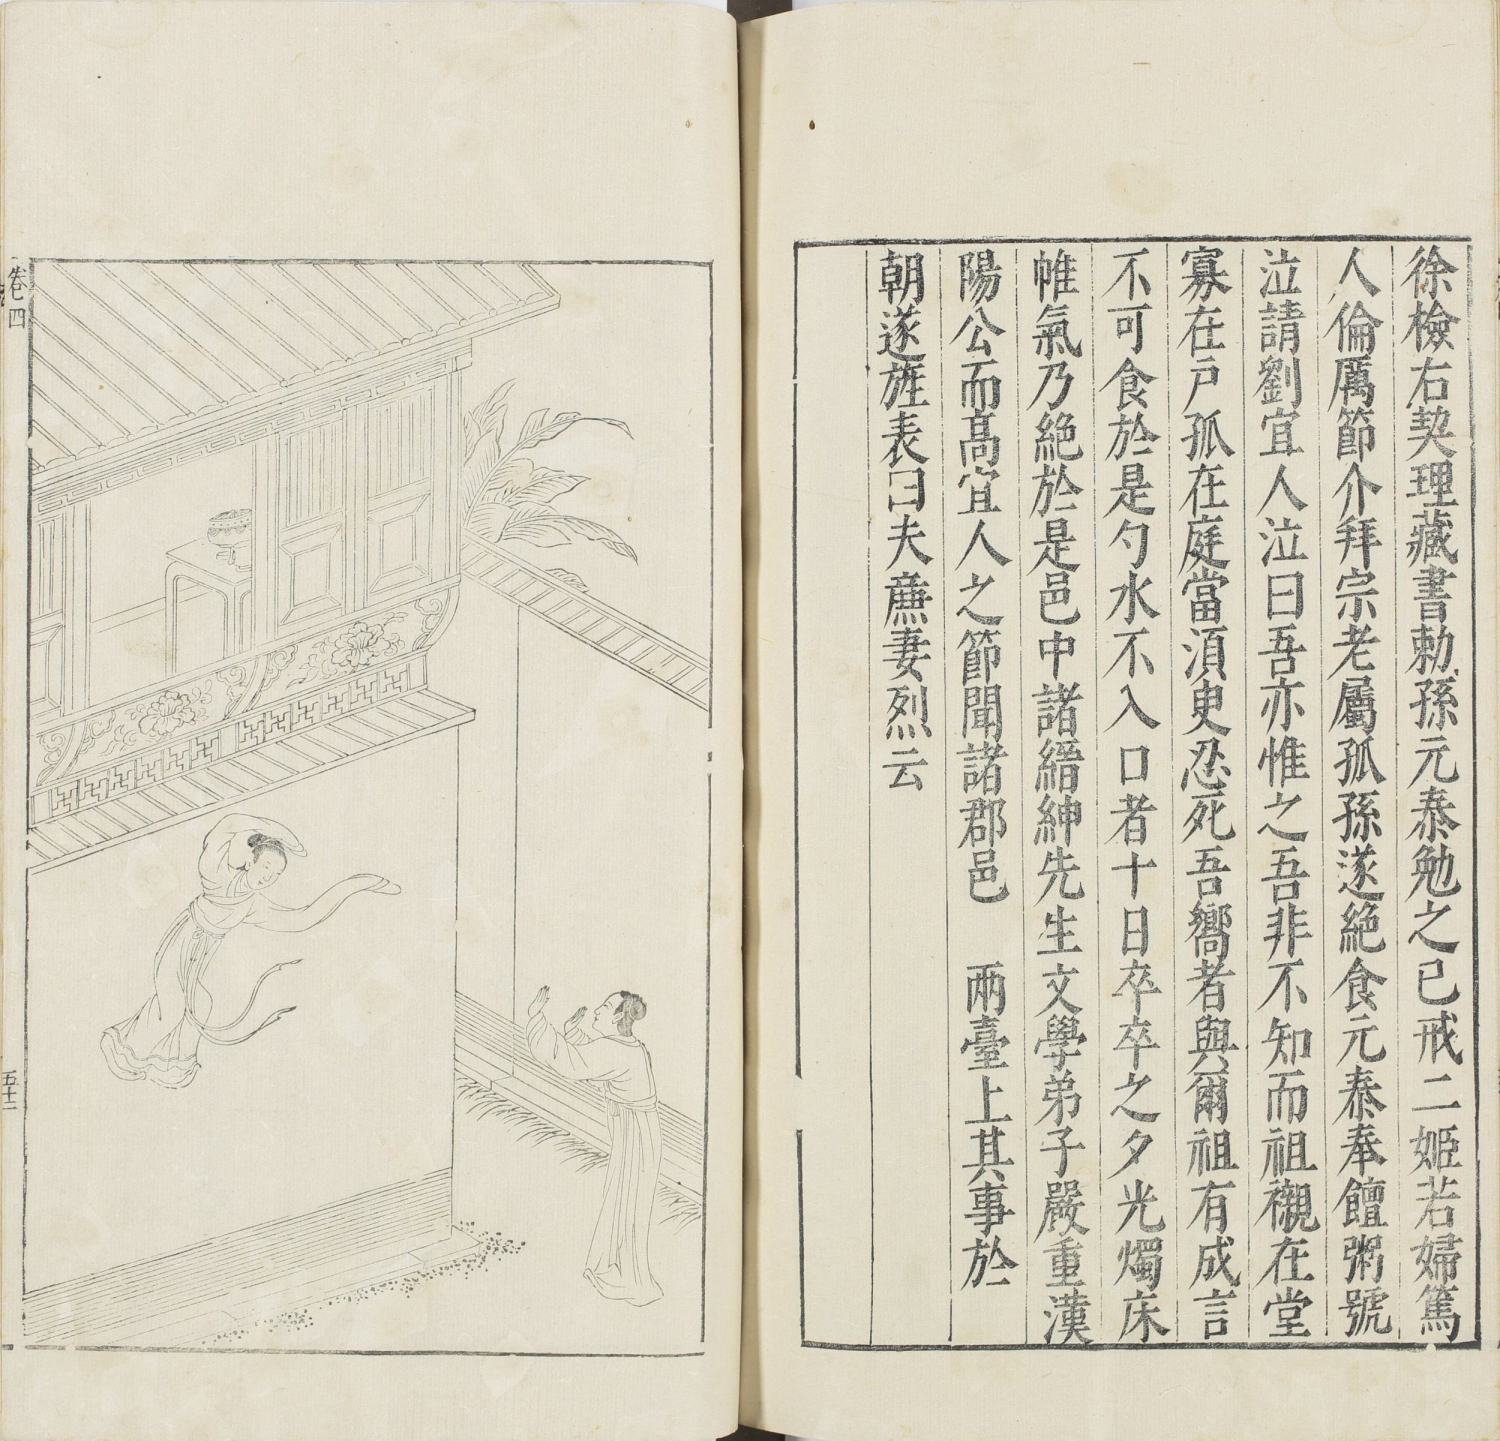 徐檢右契理藏書勅孫元泰勉之已戒二姬若婦篤
人倫厲節介拜宗老屬孤孫遂絕食元泰奉饘粥號
泣請劉宜人泣曰吾亦惟之吾非不知而祖櫬在堂
寡在戶孤在庭當須臾忍死吾嚮者與爾祖有成言
不可食於是勺水不入口者十日卒卒之夕光燭床
帷氣乃絕於是邑中諸縉紳先生文學弟子嚴重漢
陽公而高宜人之節聞諸郡邑 兩臺上其事於
朝遂旌表曰夫廉妻烈云
卷四
五十一